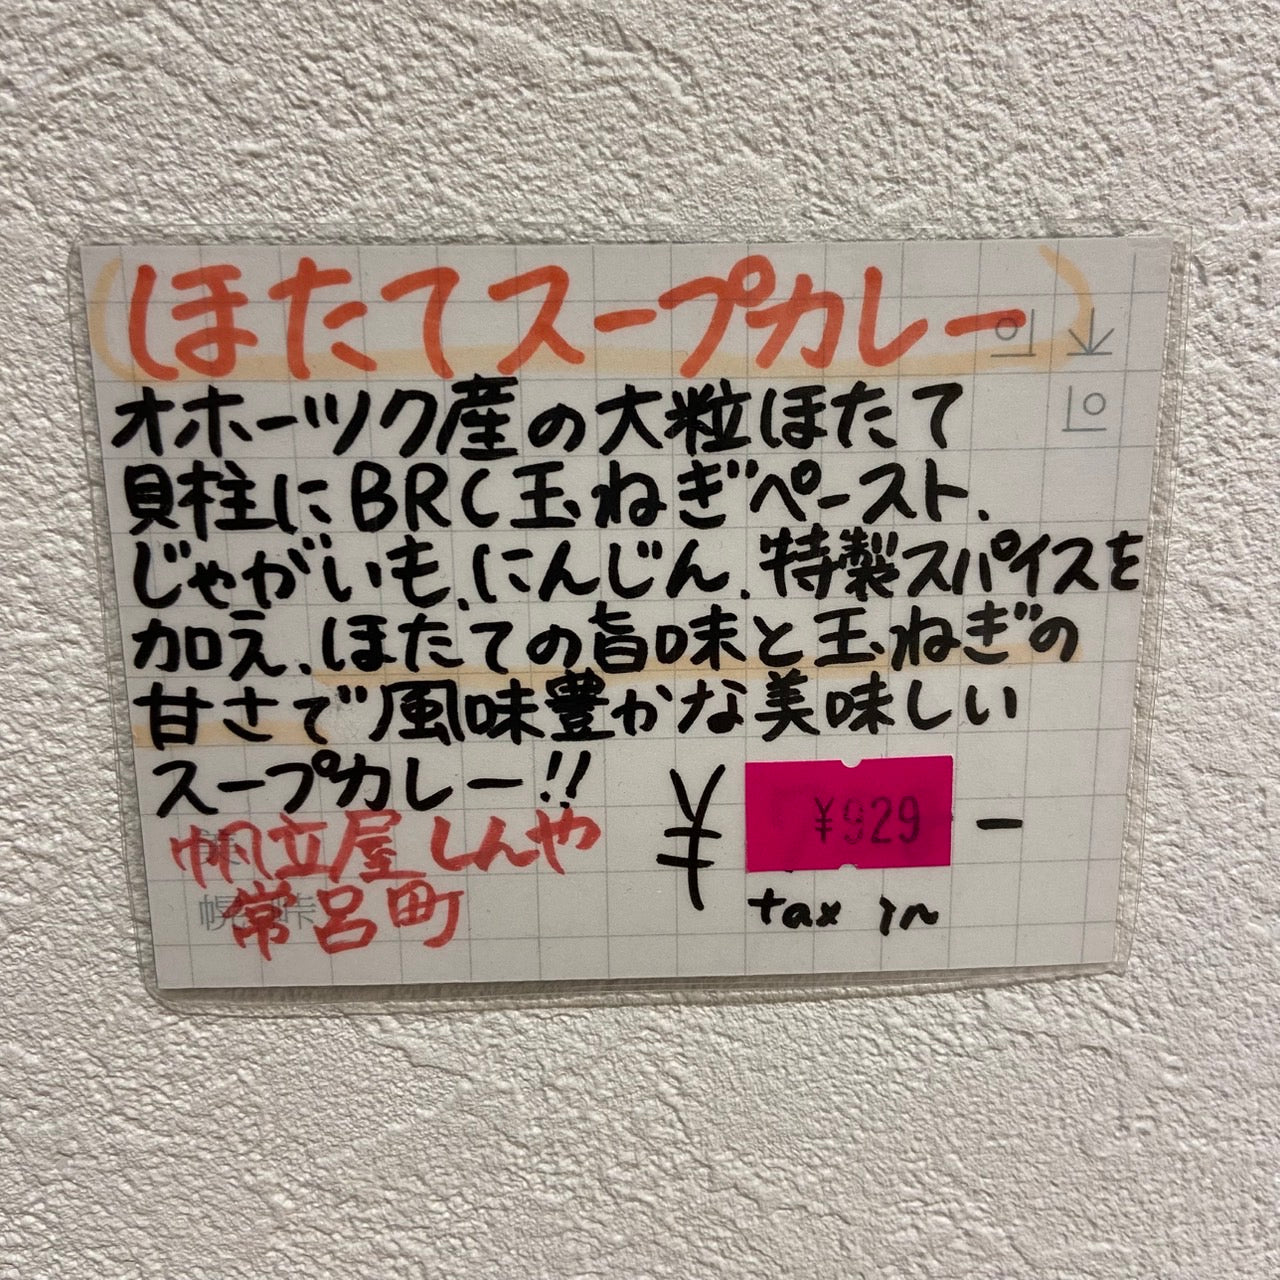 ほたてスープカレー
オホーツク産の大粒ほたて
貝柱にBRC玉ねぎペースト、
じゃがいも、にんじん、特製スパイスを
加え、ほたての旨味と玉ねぎの
甘さで風味豊かな美味しい
スープカレー!!
¥ ¥929 -
tax in
帆立屋しんや
常呂町